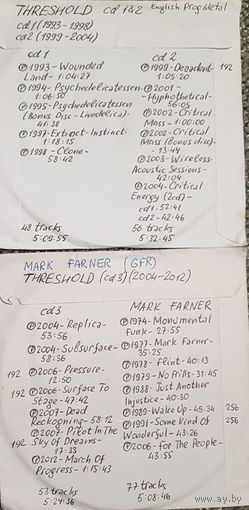 THRESHOLD cd 1&2 English Prog Metal
cd1 (1993-1998)
cd2 (1999-2004)
cd1
℗1993-Wounded
Land-1:04:27
℗1994-Psychedelicatessen
1:06:50
℗1995-Psychedelicatessen
(Bonus Disc-Livedelica)-
41:38
℗1997-Extinct-Instinct
1:18:15
℗1998-Clone-
58:42
48 tracks
5:09:55
cd 2
℗1999-Decadent- 192
1:05:20
℗2001-
-Hyphothetical-
56:05
℗2002-Critical
Mass-1:00:00
℗2002-Critical
Mass (bonus disc)-
-13:44
℗2003-Wireless-
Acoustic Sessions-
42:04
℗2004-Critical
Energy (2cd)-
cd1-52:41
cd2-42:46
56 tracks
5:32:45
MARK FARNER (GFR)
THRESHOLD (cd3) (2004-2012)
cd3
℗2004-Replica-
53:56
℗2004-Subsurface-
58:36
192 ℗2006-Pressure-
12:50
192 ℗2006-Surface To
Stage-47:42
℗2007-Dead
Reckoning-58:12
℗2007-Pilot In The
192 Sky of Dreams-
17:33
℗2012-March Of
Progress-1:15:43
53 tracks
5:24:36
MARK FARNER
℗1974-Monumental
Funk-27:55
℗1977-Mark Farner-
35:25
℗1978-Flint-40:13
℗1979-No Frills-31:45
℗1988-Just Another
Injustice-40:30
℗1989-Wake Up-45:34 256
℗1991-Some Kind Of 256
Wonderful-43:26
℗2006-For The People-
43:55
77 tracks
5:08:46
www.ay.by